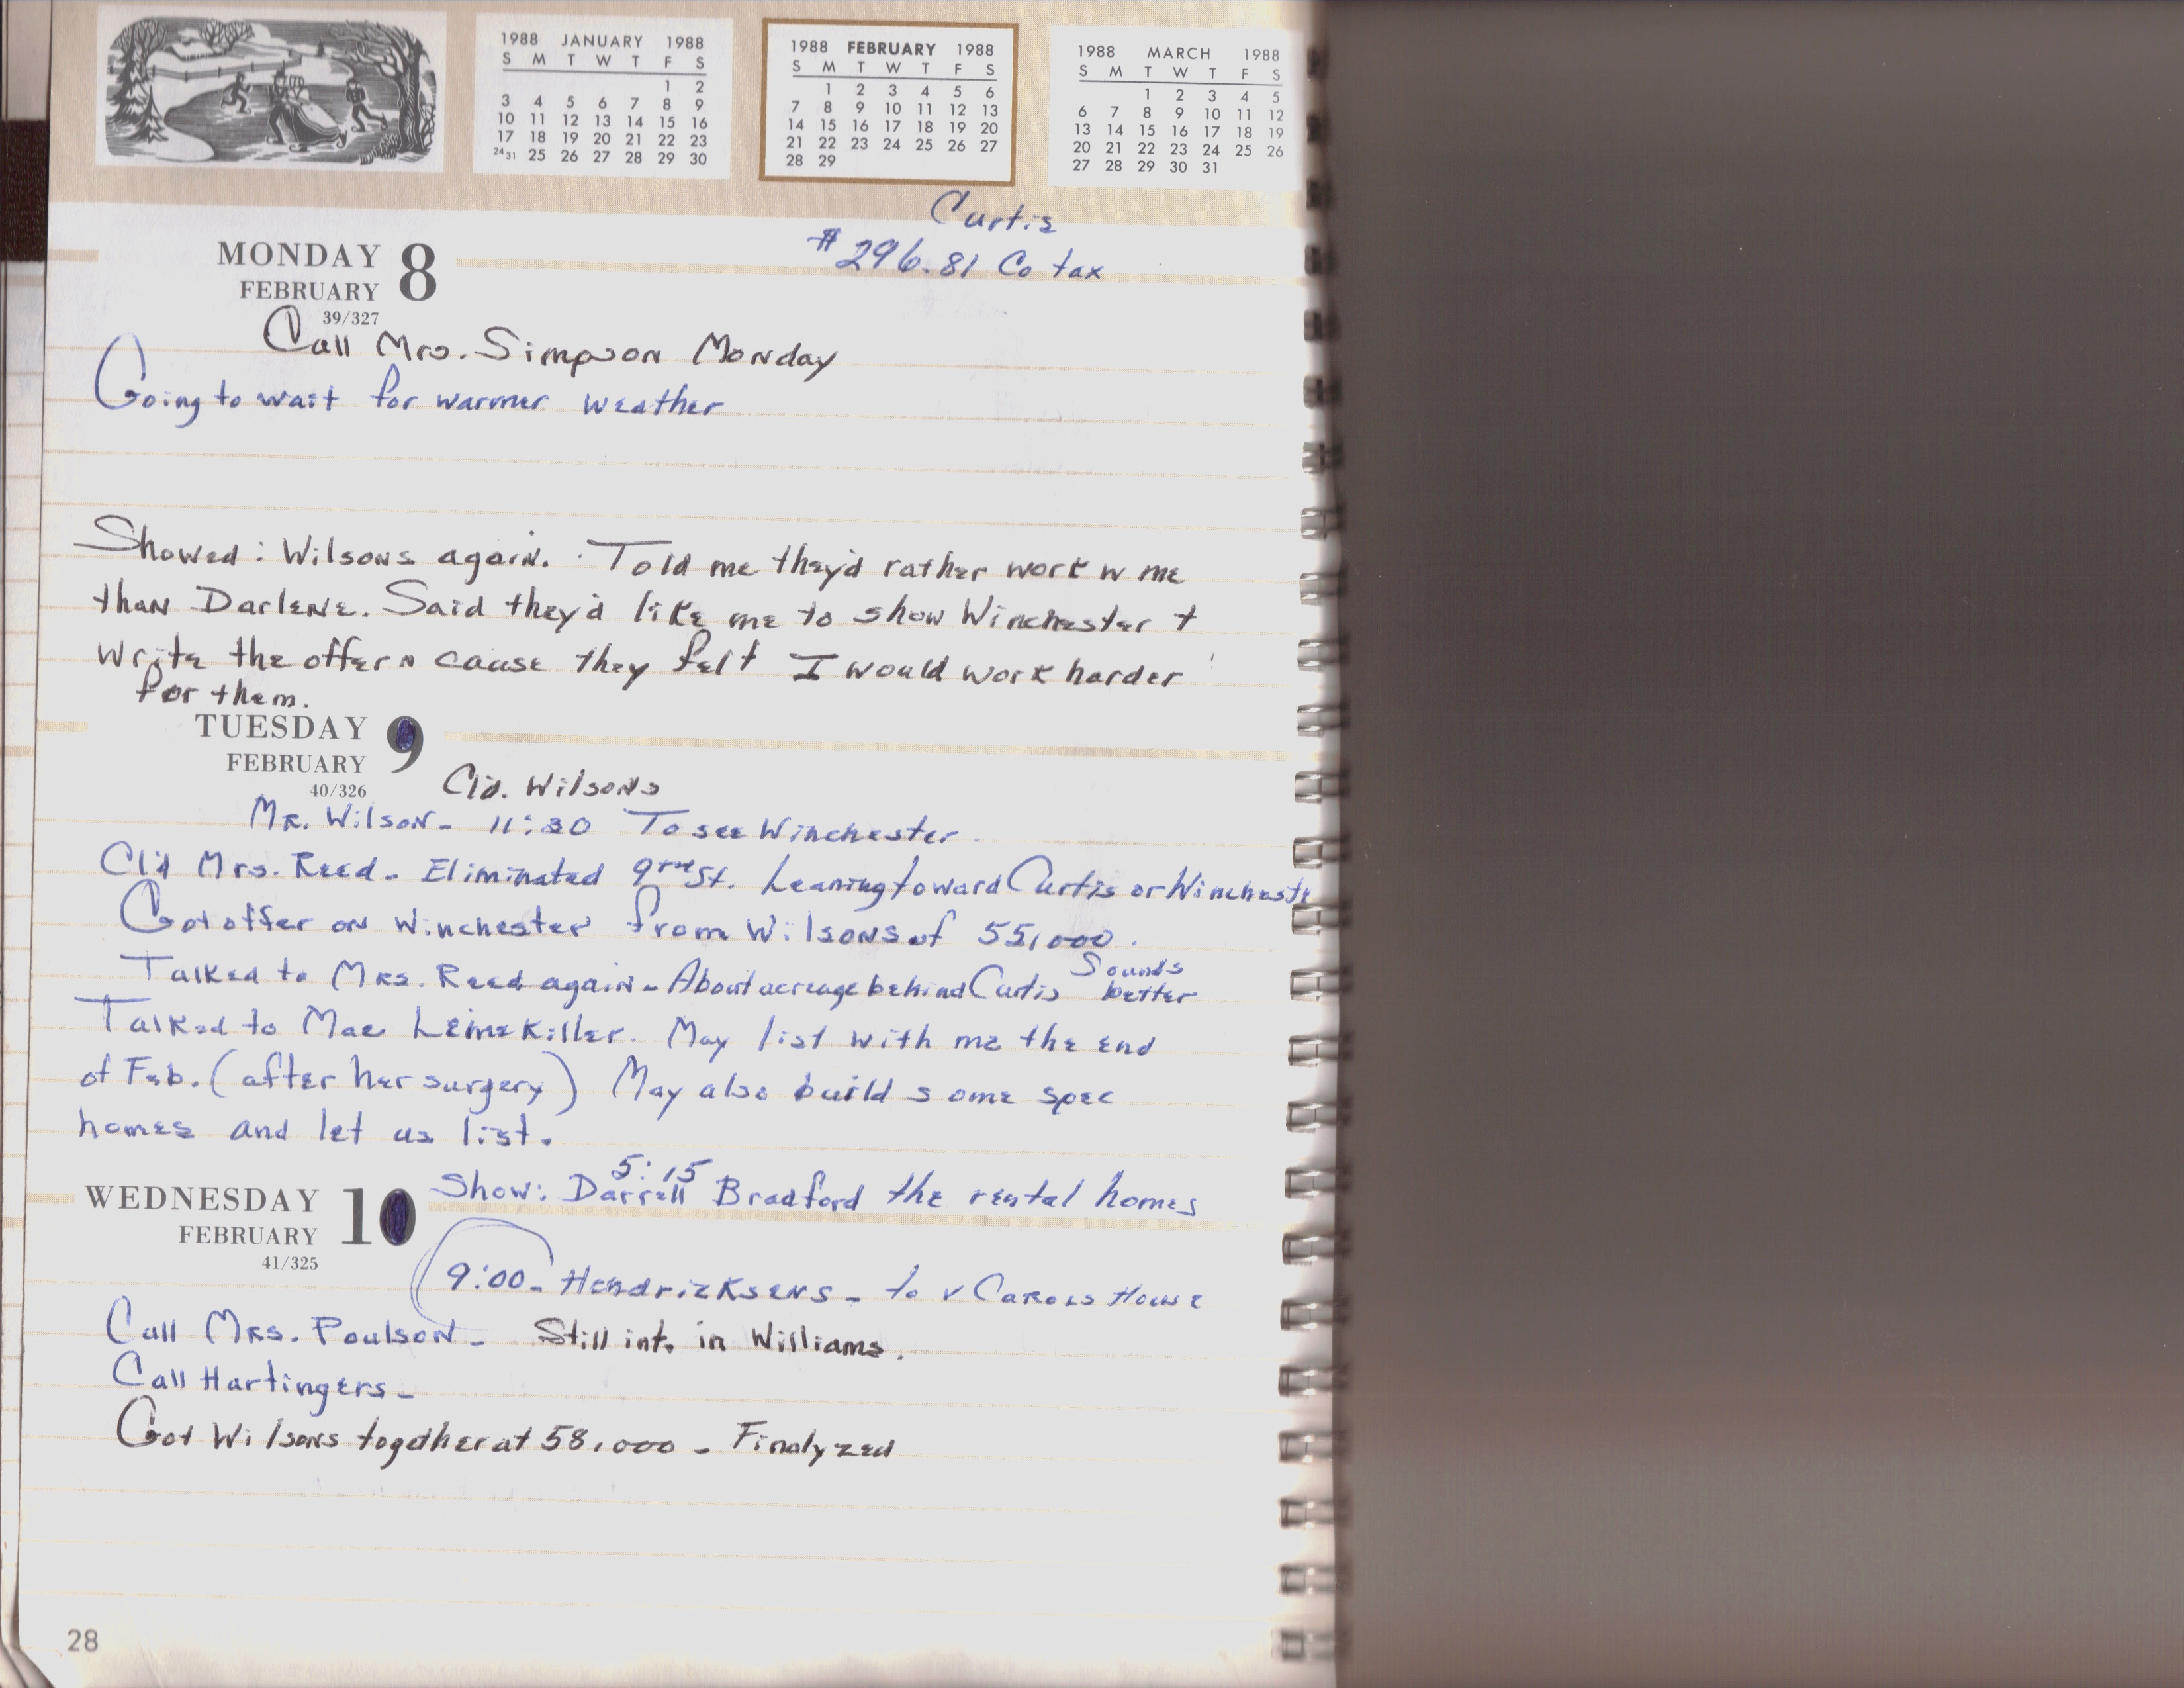 1988 JANUARY 1988
S M T W T F S
1 2
3 4 5 6 7 8 9
10 11 12 13 14 15 16
17 18 19 20 21 22 23
24 31 25 26 27 28 29 30
1988 FEBRUARY 1988
S M T W T F S
1 2 3 4 5 6
7 8 9 10 11 12 13
14 15 16 17 18 19 20
21 22 23 24 25 26 27
28 29
1988 MARCH 1988
S M T W T F S
1 2 3 4 5
6 7 8 9 10 11 12
13 14 15 16 17 18 19
20 21 22 23 24 25 26
27 28 29 30 31
Curtis
#296.81 Co tax
MONDAY 8
FEBRUARY
39/327
Call Mrs. Simpson Monday
Going to wait for warmer weather
Showed: Wilsons again. Told me they'd rather work w me
than Darlene. Said they'd like me to show Winchester +
write the offer n cause they felt I would work harder
for them.
TUESDAY 9
FEBRUARY
40/326
Cl'd. Wilsons
Mr. Wilson - 11:30 To see Winchester.
Cl'd Mrs. Reed - Eliminated St. Leaning toward Curtis or Wincheste
Got offer on Winchester from Wilsons of 55,000.
Talked to Mrs. Reed again - About acreage behind Curtis Sounds
better
Talked to Mae Leimekiller. May list with me the end
of Feb. (after her surgery) May also build some spec
homes and let us list.
5:15
Show: Darrell Bradford the rental homes
WEDNESDAY 10
FEBRUARY
41/325
9:00 - Hendricksens - to v Carols House
Call Mrs. Poulson - Still int. in Williams.
Call Hartingers -
Got Wilsons together at 58,000 - Finalyzed
28